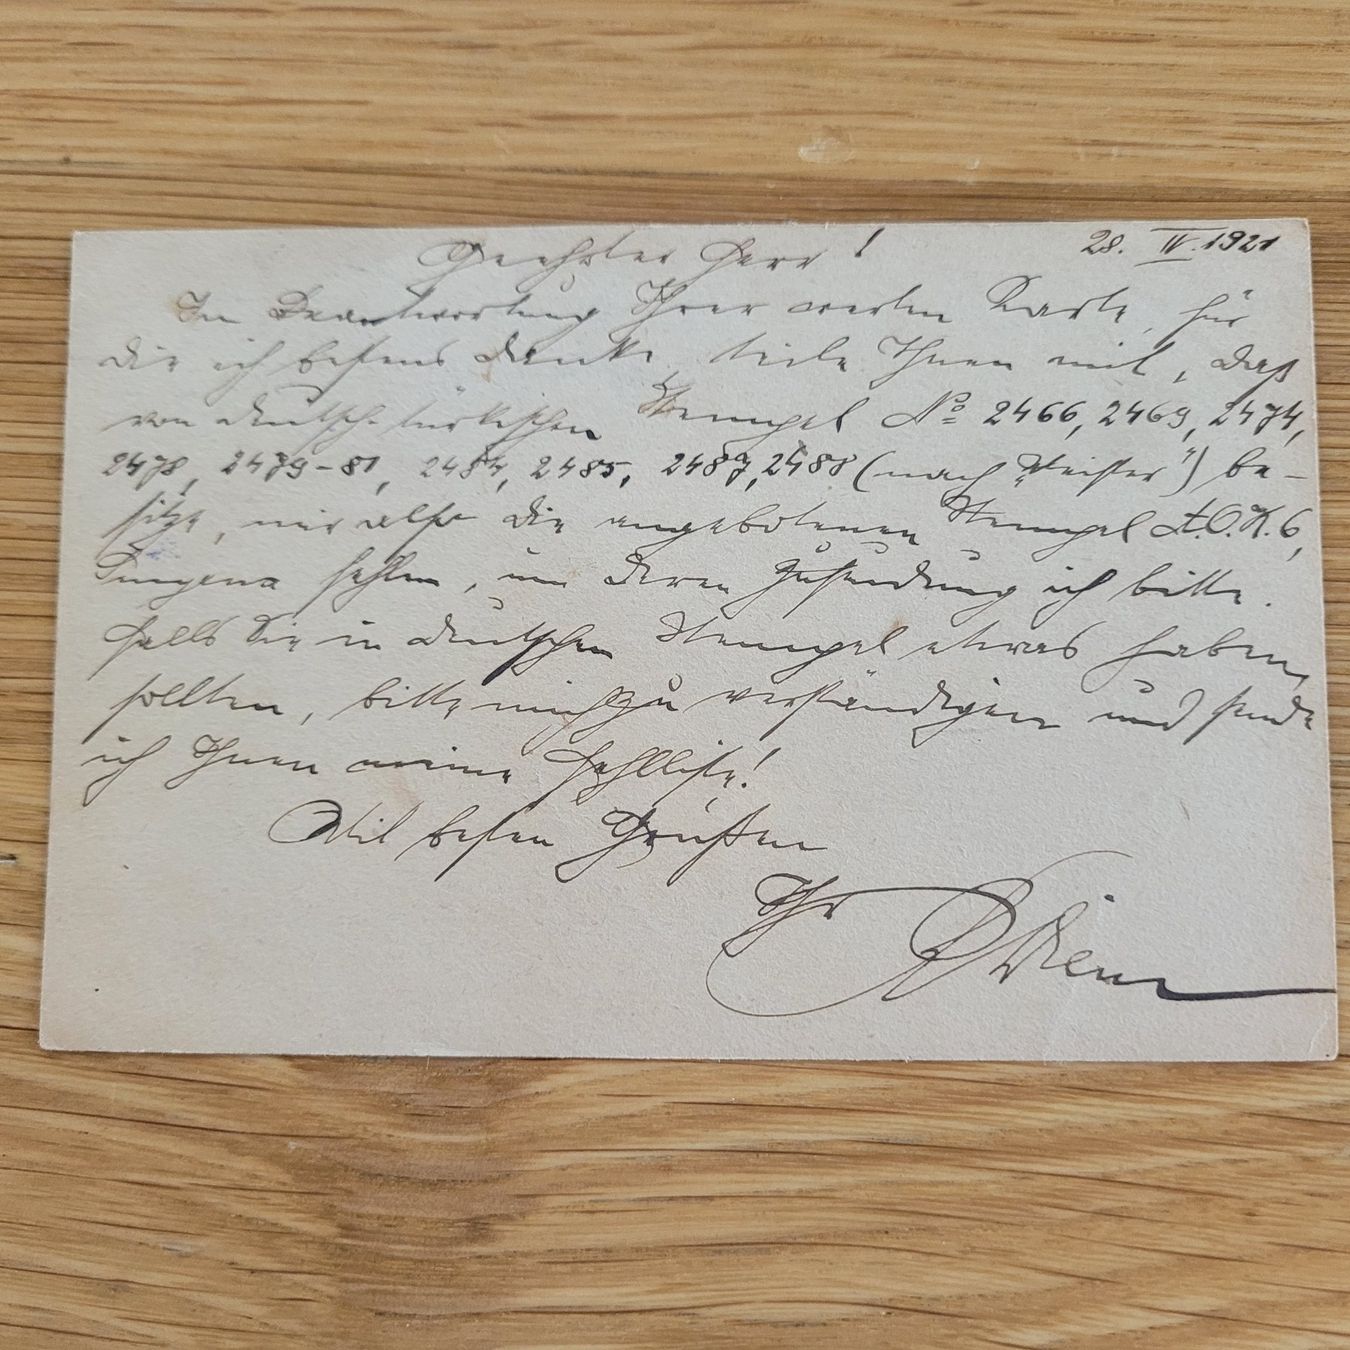 28. IV. 1921
Geehrter Herr!
In Beantwortung Ihrer werten Karte, für
die ich bestens danke, teile Ihnen mit, daß
von deutsch-türkischen Stempel № 2466, 2469, 2474,
2478, 2479-81, 2484, 2485, 2487, 2488 (nach „Pfeifer") be-
sitze, mir also die angebotenen Stempel A.O.K. 6,
fehlen, um deren Zusendung ich bitte.
Falls Sie in deutschen Stempel etwas haben
sollten, bitte mich zu verständigen und sende
ich Ihnen meine Fehlliste!
Mit besten Grüßen
Ihr